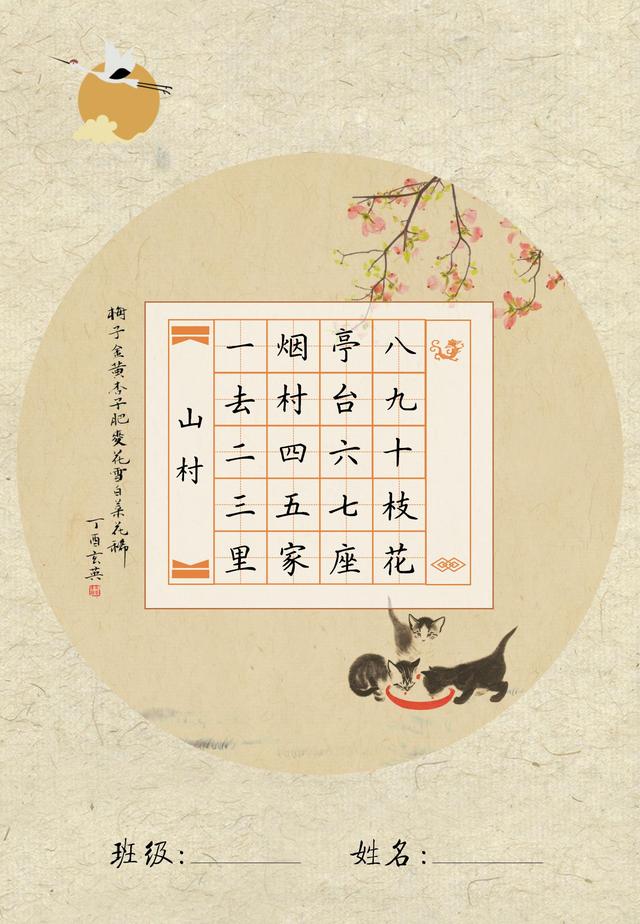 梅子金黄杏子肥麥花雪白菜花稀
丁酉玄英
山村
一去二三里
烟村四五家
亭台六七座
八九十枝花
班级:
姓名: